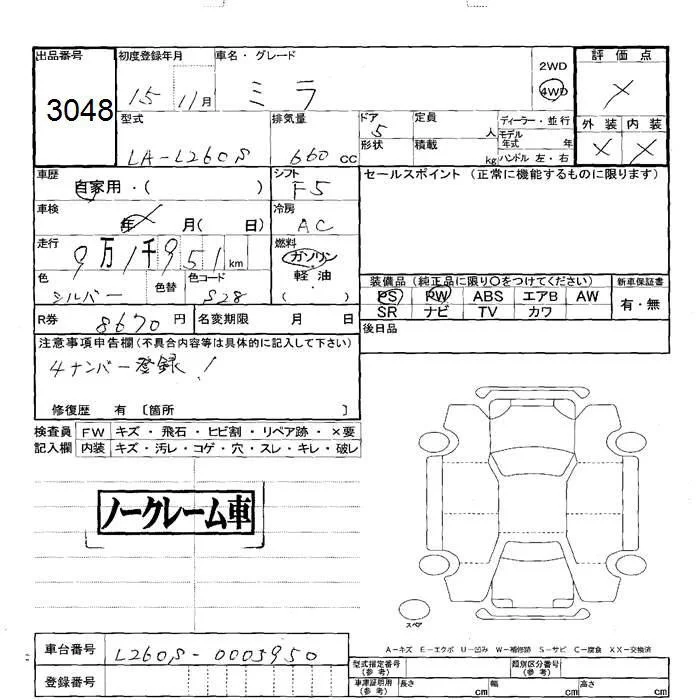 出品番号 初度登録年月 車名・グレード 評価点
3048 15 11月 ミラ 2WD 4WD ×
型式 排気量 ドア 定員 ディーラー・並行 外装 内装
LA-L260S 660cc 5 人 モデル年式 年 × ×
形状 積載 kg ハンドル 左・右
車歴 自家用・( ) シフト F5 セールスポイント (正常に機能するものに限ります)
車検 年 月( 日) 冷房 AC
走行 9万1千951km 燃料 ガソリン 軽油 ( )
色 シルバー 色替 色コード S28
装備品 (純正品に限り〇をつけてください) 新車保証書
PS PW ABS エアB AW 有・無
SR ナビ TV カワ
R券 8670円 名変期限 月 日 後日品
注意事項申告欄 (不具合内容等は具体的に記入して下さい)
4ナンバー登録!
修復歴 有 〔箇所 〕
検査員 FW キズ・飛石・ヒビ割・リペア跡・×要
記入欄 内装 キズ・汚レ・コゲ・穴・スレ・キレ・破レ
ノークレーム車
スペア
A-キズ E-エクボ U-凹み W-補修跡 S-サビ C-腐食 XX-交換済
車台番号 L260S-0003950
登録番号
型式指定番号 (参考) 類別区分番号 (参考)
車庫証明用 (参考) 長さ cm 幅 cm 高さ cm